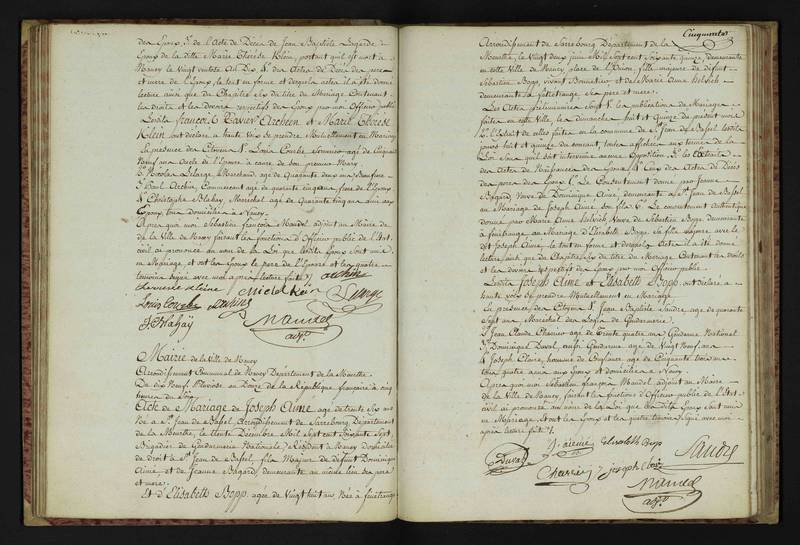 des Epoux 3.° de l'acte de Décès de Jean Baptiste Lagarde
Epoux de la ditte Marie Thérèse Klein, portant qu'il est mort à
Nancy le vingt ventôse An Dix 4.° des actes de Décès des père
et mère de l'Epoux, le tout en forme, et desquels actes il a été donné
lecture ainsi que du Chapitre six du titre du Mariage Contenant
les droits et les devoirs respectifs des Epoux par moi Officier public
Lesdits François Xavier Archien et Marie Thérèse
Klein ont déclaré à haute voix se prendre Mutuellement en Mariage
En présence des Citoyens 1.° Louis Courbe
oncle de l'Epouse à cause de son premier Mary
2.° Nicolas Marchand agé de Quarante deux ans Beaufrere
3.° Paul Archin, Commerçant agé de quarante cinq ans frere de l'Epoux
4.° Christophe Blahay, Marechal agé de Quarante cinq ans amis des
Epoux, tous domiciliés à Nancy.
Après quoi moi Sébastien François Mandel adjoint au Maire de
de la Ville de Nancy faisant les fonctions d'Officier public de l'état
civil ai prononcé au nom de la Loi que lesdits Epoux sont unis
en Mariage, et ont les Epoux le pere de l'Epouse et les quatre
temoins signé avec moi après lecture faite /.
archien
Michel Klein
Louis Courbe
Blahaÿ
Mandel
adj.t
Mairie de la Ville de Nancy
Arrondissement Communal de Nancy Département de la Meurthe.
Du dix Neuf Pluviôse an Douze de la République française à cinq
heures du Soir
Acte de Mariage de Joseph Aimé agé de trente six ans
Né à S.t Jean de Bassel, Arrondissement de Sarrebourg, Département
de la Meurthe, le trente Décembre Mil sept cent soixante sept
Brigadier de Gendarmerie Nationale, Résidant à Nancy domicilié
de droit à S.t Jean de Bassel, fils Majeur de défunt Dominique
Aimé et de Jeanne Bagard, demeurante au même lieu ses père
et mere.
Et d'Elisabeth Bopp, agée de Vingt huit ans Née à fénétrange
Cinquante
Arrondissement de Sarrebourg Département de la
Meurthe, le Vingt deux Juin Mil Sept cent soixante quinze, demeurante
en cette Ville de Nancy place de l'Union fille majeure de défunt
Sébastien Bopp vivant Bonnetier et de Marie Anne Helvich
demeurante à fénétrange ses pere et mere.
Les Actes préliminaires sont 1.° la publication de Mariage
faite en cette Ville, les dimanche huit et Quinze du présent mois
2.° l'Extrait de celles faites en la commune de S.t Jean de Bassel lesdits
jours huit et quinze du courant, toutes affichées aux termes de la
Loi sans qu'il soit intervenu aucune Opposition 3.° les Extraits
des Actes de Naissances des Epoux 4.° Ceux des Actes de Décès
des peres des Epoux 5.° Le Consentement donné par Jeanne
Bagard, Veuve de Dominique Aimé demeurante à S.t Jean de Bassel
au Mariage de Joseph Aimé son fils 6.° Le consentement authentique
donné par Marie Anne Helvich Veuve de Sébastien Bopp demeurante
à fénétrange au Mariage d'Elisabeth Bopp Sa fille majeure avec le
dit Joseph Aimé le tout en forme et desquels Actes il a été donné
lecture, ainsi que du Chapitre six du titre du Mariage Contenant les droits
et les devoirs respectifs des Epoux par moi Officier public.
Lesdits Joseph Aimé et Elisabeth Bopp ont déclaré à
haute voix se prendre Mutuellement en Mariage
En présence des Citoyens 1.° Jean Baptiste Sandre agé de quarante
sept ans Marechal des Logis de Gendarmerie
2.° Jean Claude agé de Trente quatre ans Gendarme National
3.° Dominique Duval aussi Gendarme agé de Vingt Neuf ans
4.° Joseph Claire, homme de Confiance agé de Cinquante trois ans
tous quatre amis aux Epoux et domiciliés à Nancy.
Après quoi moi Sébastien françois Mandel adjoint au Maire
de la Ville de Nancy, faisant les fonctions d'Officier public de l'état
civil ai prononcé au nom de la Loi que lesdits Epoux sont unis
en Mariage et ont les Epoux et les quatre temoins signé avec moi
après lecture faite /.
J. aiemé Elisabeth Bopp
Duval Sandre
joseph
Mandel
adj.t